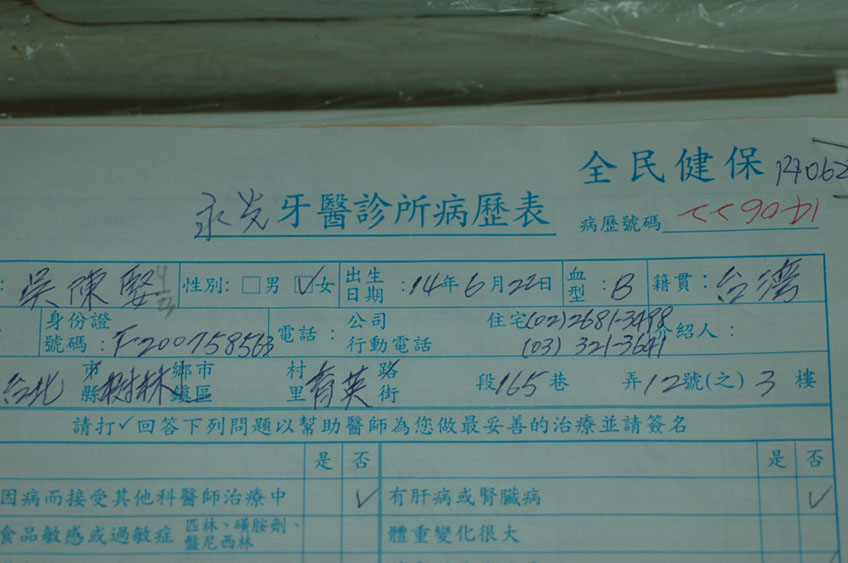 全民健保
永光牙醫診所病歷表
病歷號碼
吳陳 性別:□男 ☑女 出生日期:14年6月22日 血型:B 籍貫:台灣
身份證號碼:F200758563 電話: 公司 住宅(02)2681-3498 紹人:
行動電話 (03) 321-3641
台北 市縣 樹林 鄉市鎮區 村里 育英 路街 段165巷 弄12號(之) 3樓
請打✓回答下列問題以幫助醫師為您做最妥善的治療並請簽名
是 否 是 否
因病而接受其他科醫師治療中 ✓ 有肝病或腎臟病 ✓
食品敏感或過敏症 匹林、磺胺劑、盤尼西林 體重變化很大